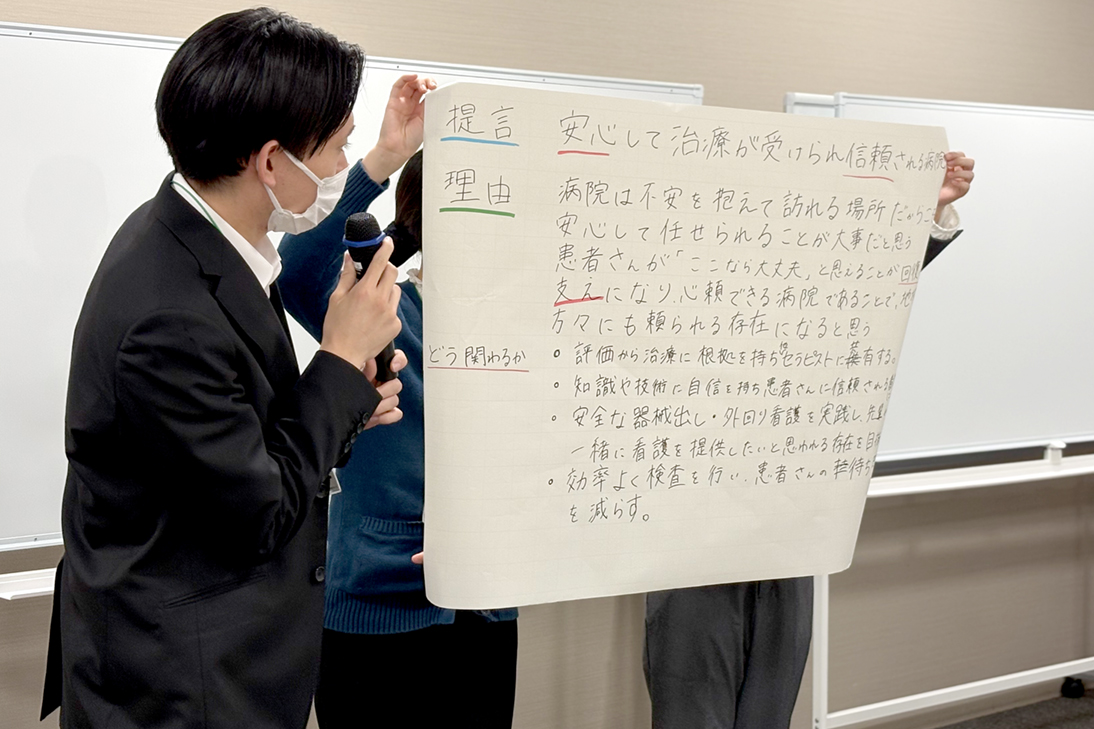 提言 安心して治療が受けられ信頼される病院
理由 病院は不安を抱えて訪れる場所だからこ
安心して任せられることが大事だと思う
患者さんが「ここなら大丈夫」と思えることが回復
支えになり、心頼できる病院であることで、地
方々にも頼られる存在になると思う
どう関わるか
。評価から治療に根拠を持ち他セラピストに共有する。
。知識や技術に自信を持ち患者さんに信頼される
。安全な器械出し・外回り看護を実践し、先輩
一緒に看護を提供したいと思われる存在を目
。効率よく検査を行い、患者さんの待ち
を減らす。